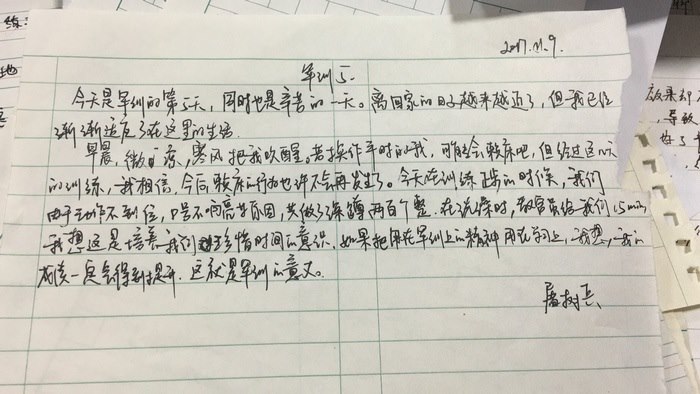 2017.11.9.
军训 5.
今天是军训的第5天,同时也是辛苦的一天。离回家的日子越来越近了,但我已经
渐渐适应了在这里的生活.
早晨,微凉,寒风把我吹醒。若换作平时的我,可能会赖床吧,但经过这几天
的训练,我相信,今后赖床的行为也许不会再发生了。今天在训练正步的时候,我们
由于动作不到位,口号不响亮等原因,共做了深蹲两百个整。在洗澡时,教官只给我们15min
我想这是培养我们珍惜时间的意识。如果把用在军训上的精神用在学习上,我想,我的
成绩一定会得到提升.这就是军训的意义。
屠树兵
练:
地
放果却
,导致